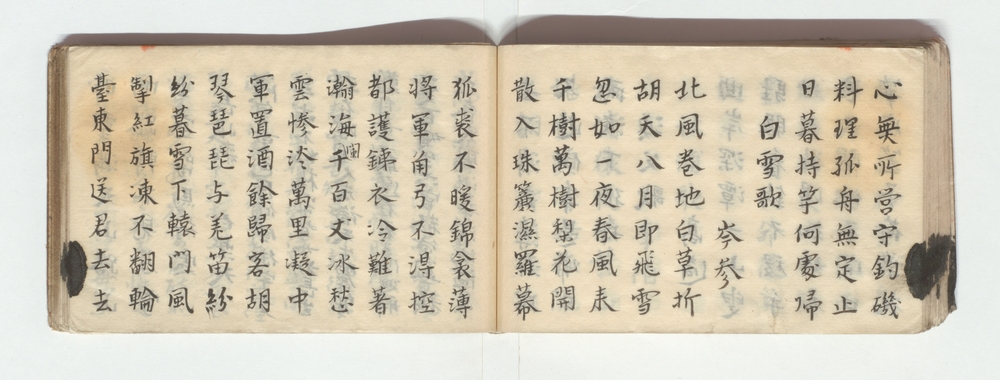 心無所営守釣磯
料理孤舟無定止
日暮持竿何處帰
白雪歌 岑参
北風巻地白草折
胡天八月即飛雪
忽如一夜春風来
千樹萬樹梨花開
散入珠簾濕羅幕
狐裘不暖錦衾薄
将軍角弓不得控
都護鐵衣冷難著
瀚海闌千百丈冰愁
雲惨淡萬里凝中
軍置酒餘歸客胡
琴琵琶与羌笛紛
紛暮雪下轅門風
掣紅旗凍不翻輪
臺東門送君去去